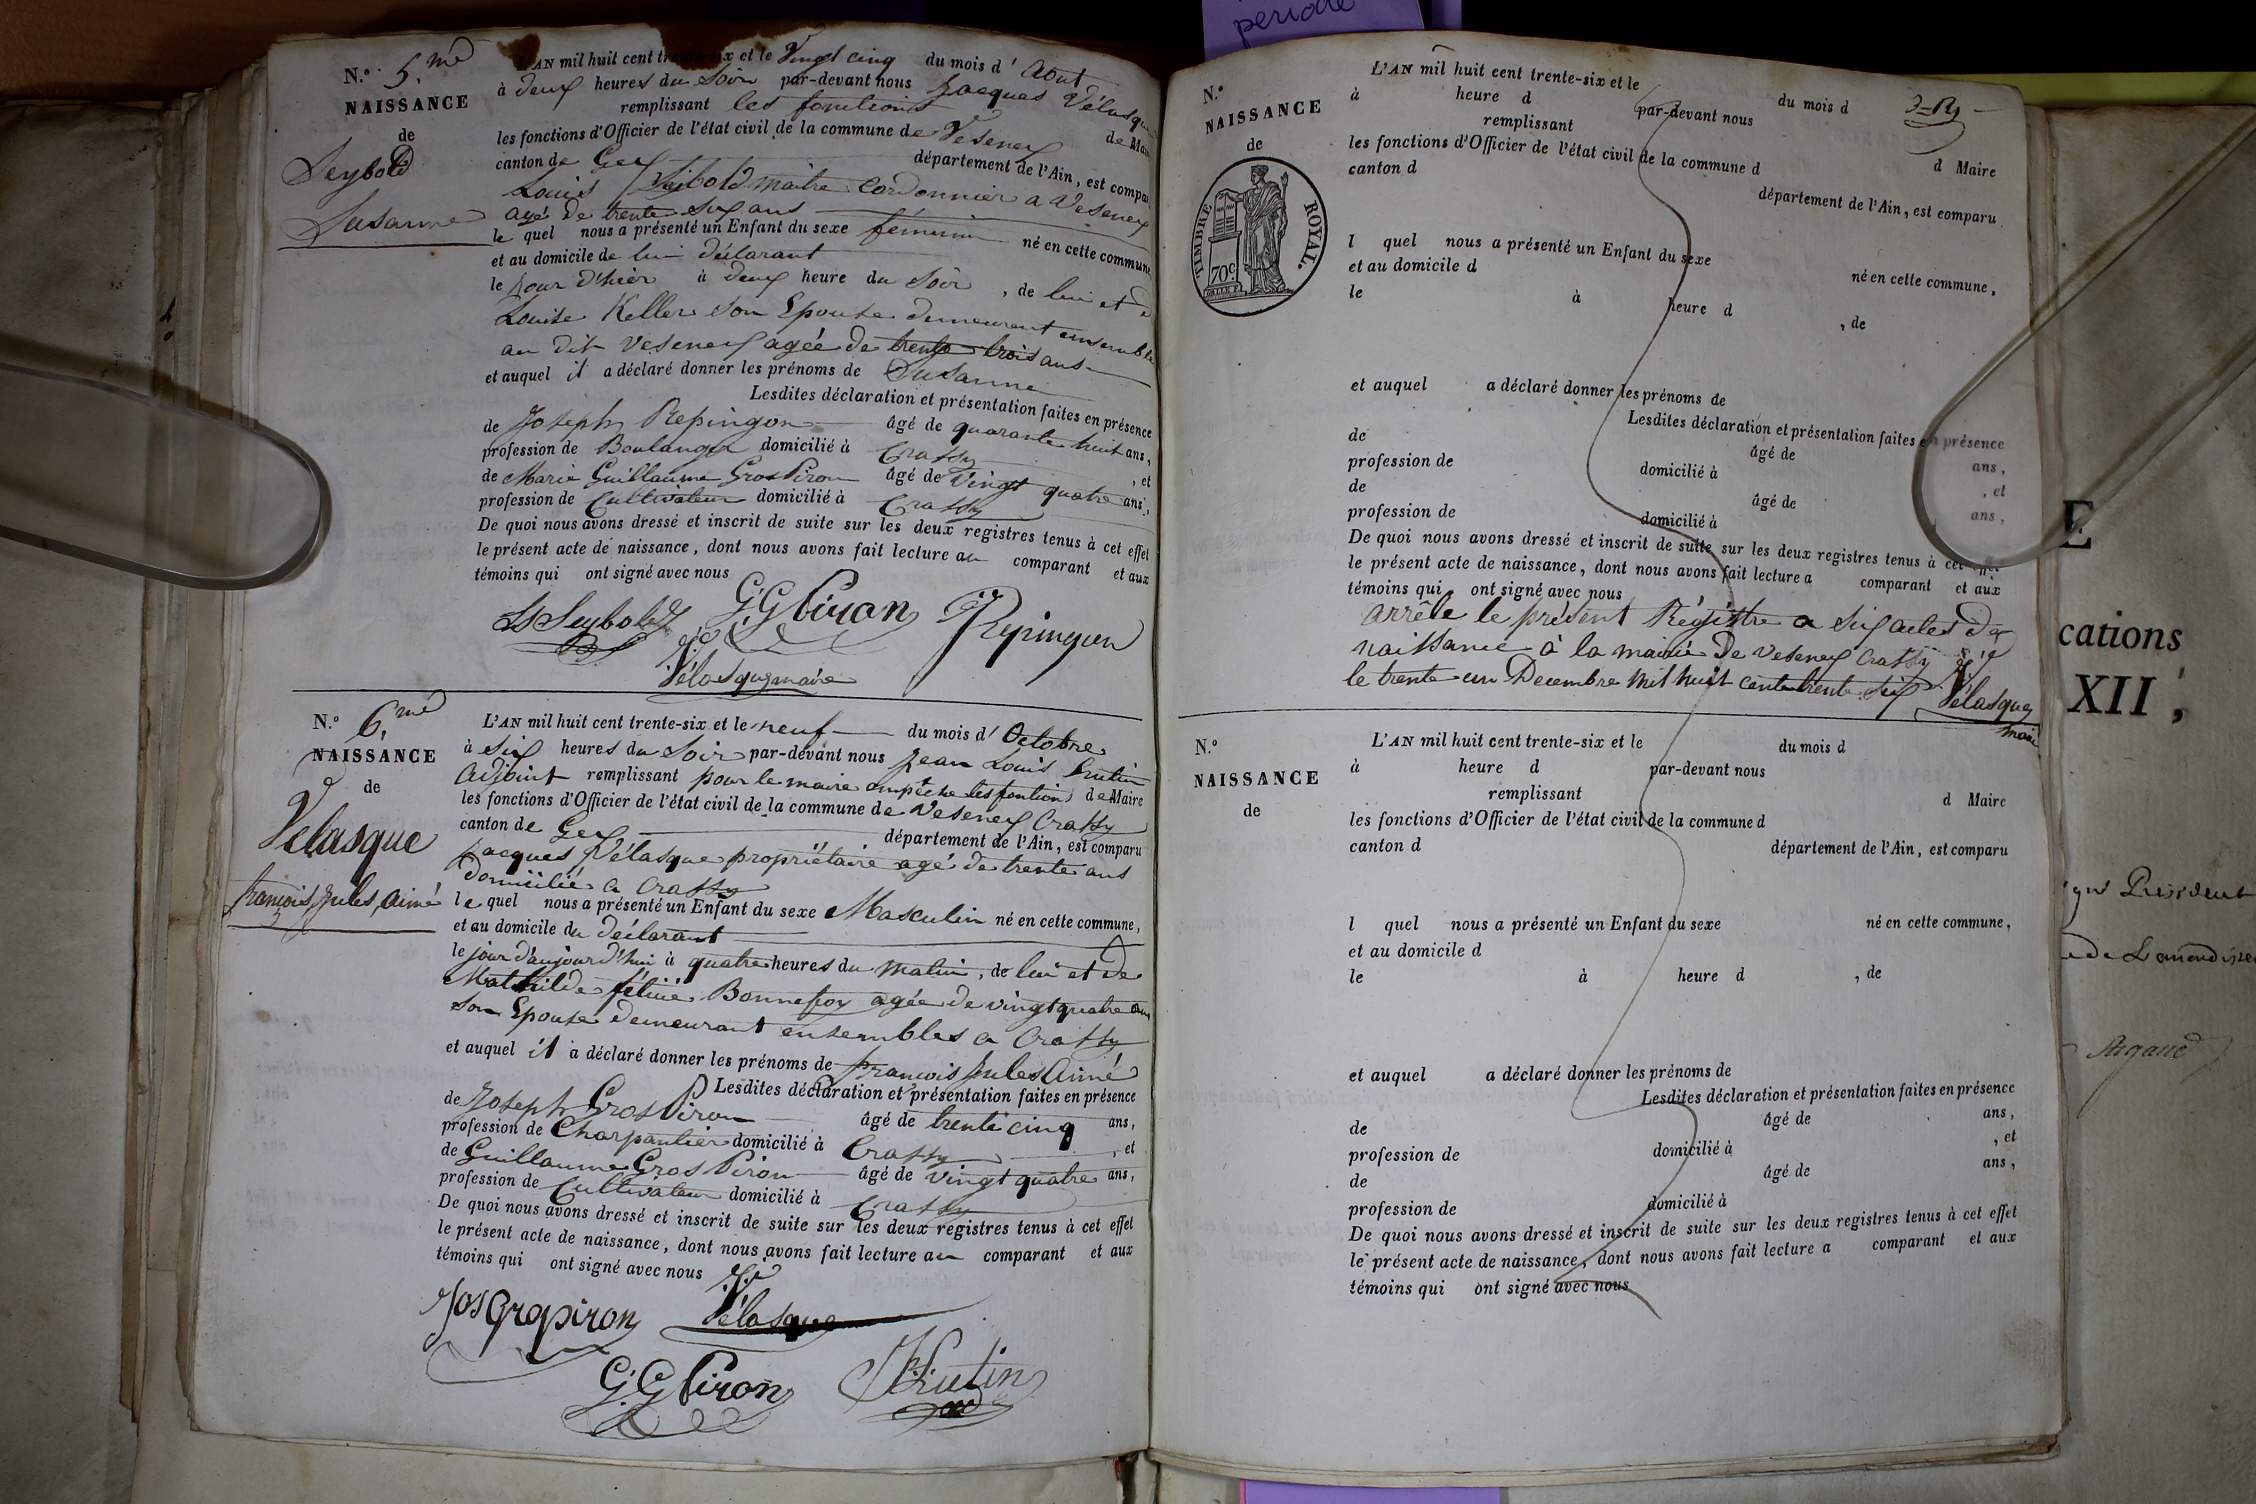 période
N.° 5.me
NAISSANCE
de
Seybold
Susanne
L'AN mil huit cent trente-six et le Vingt cinq du mois d'Aout
à deux heures du Soir par-devant nous Jacques Vélasque
remplissant les fonctions de Mai
les fonctions d'Officier de l'état civil de la commune de Vesenex
canton de Gex département de l'Ain, est compa
Louis Seibold maitre Cordonnier a Vesenex
agé de trente Six ans
le quel nous a présenté un Enfant du sexe féminin né en cette commune
et au domicile de lui déclarant
le jour d'hier à deux heure du Soir, de lui et d
Louise Keller son Epouse demeurent ensemble
au dit Vesenex agée de trente trois ans
et auquel il a déclaré donner les prénoms de Susanne
Lesdites déclaration et présentation faites en présence
de Joseph Repingon âgé de quarante huit ans,
profession de Boulanger domicilié à Crassy, et
de Marie Guillaume GrosPiron âgé de Vingt quatre ans,
profession de Cultivateur domicilié à Crassy
De quoi nous avons dressé et inscrit de suite sur les deux registres tenus à cet effet
le présent acte de naissance, dont nous avons fait lecture au comparant et aux
témoins qui ont signé avec nous
Ls Seybold G.GPiron JRepingon
Vélasque maire
N.° 6.me
NAISSANCE
de
Velasque
françois, Jules, aimé
L'AN mil huit cent trente-six et le neuf du mois d'Octobre
à Six heures du Soir par-devant nous Jean Louis Frutin
Adjoint remplissant pour le maire empêche les fontions de Maire
les fonctions d'Officier de l'état civil de la commune de Vesenex Crassy
canton de Gex département de l'Ain, est comparu
Jacques Vélasque propriétaire agé de trente ans
domicilié a Crassy
le quel nous a présenté un Enfant du sexe Masculin né en cette commune,
et au domicile du déclarant
le jour d'aujourd'hui à quatre heures du matin, de lui et de
Mathilde félicié Bonnefoy agée de vingt quatre ans
son Epouse demeurant ensembles a Crassy
et auquel il a déclaré donner les prénoms de françois Jules Aimé
Lesdites déclaration et présentation faites en présence
de Joseph GrosPiron âgé de trente cinq ans,
profession de Charpantier domicilié à Crassy, et
de Guillaume GrosPiron âgé de vingt quatre ans,
profession de Cultivateur domicilié à Crassy
De quoi nous avons dressé et inscrit de suite sur les deux registres tenus à cet effet
le présent acte de naissance, dont nous avons fait lecture au comparant et aux
témoins qui ont signé avec nous
Jos Gropiron Vélasque
G.GPiron Frutin
N.°
NAISSANCE
de
TIMBRE ROYAL.
70c.
L'AN mil huit cent trente-six et le du mois d
à heure d par-devant nous
remplissant d Maire
les fonctions d'Officier de l'état civil de la commune d
canton d département de l'Ain, est comparu
l quel nous a présenté un Enfant du sexe né en cette commune,
et au domicile d
le à heure d , de
et auquel a déclaré donner les prénoms de
Lesdites déclaration et présentation faites en présence
de âgé de ans,
profession de domicilié à , et
de âgé de ans,
profession de domicilié à
De quoi nous avons dressé et inscrit de suite sur les deux registres tenus à cet effet
le présent acte de naissance, dont nous avons fait lecture a comparant et aux
témoins qui ont signé avec nous
arrêté le présent Régistre a Six actes de
naissance à la mairie de Vesenex Crassy
le trente un Decembre Mil huit cent trente Six Vélasque
maire
N.°
NAISSANCE
de
L'AN mil huit cent trente-six et le du mois d
à heure d par-devant nous
remplissant d Maire
les fonctions d'Officier de l'état civil de la commune d
canton d département de l'Ain, est comparu
l quel nous a présenté un Enfant du sexe né en cette commune,
et au domicile d
le à heure d , de
et auquel a déclaré donner les prénoms de
Lesdites déclaration et présentation faites en présence
de âgé de ans,
profession de domicilié à , et
de âgé de ans,
profession de domicilié à
De quoi nous avons dressé et inscrit de suite sur les deux registres tenus à cet effet
le présent acte de naissance, dont nous avons fait lecture a comparant et aux
témoins qui ont signé avec nous
E
cations
XII,
President